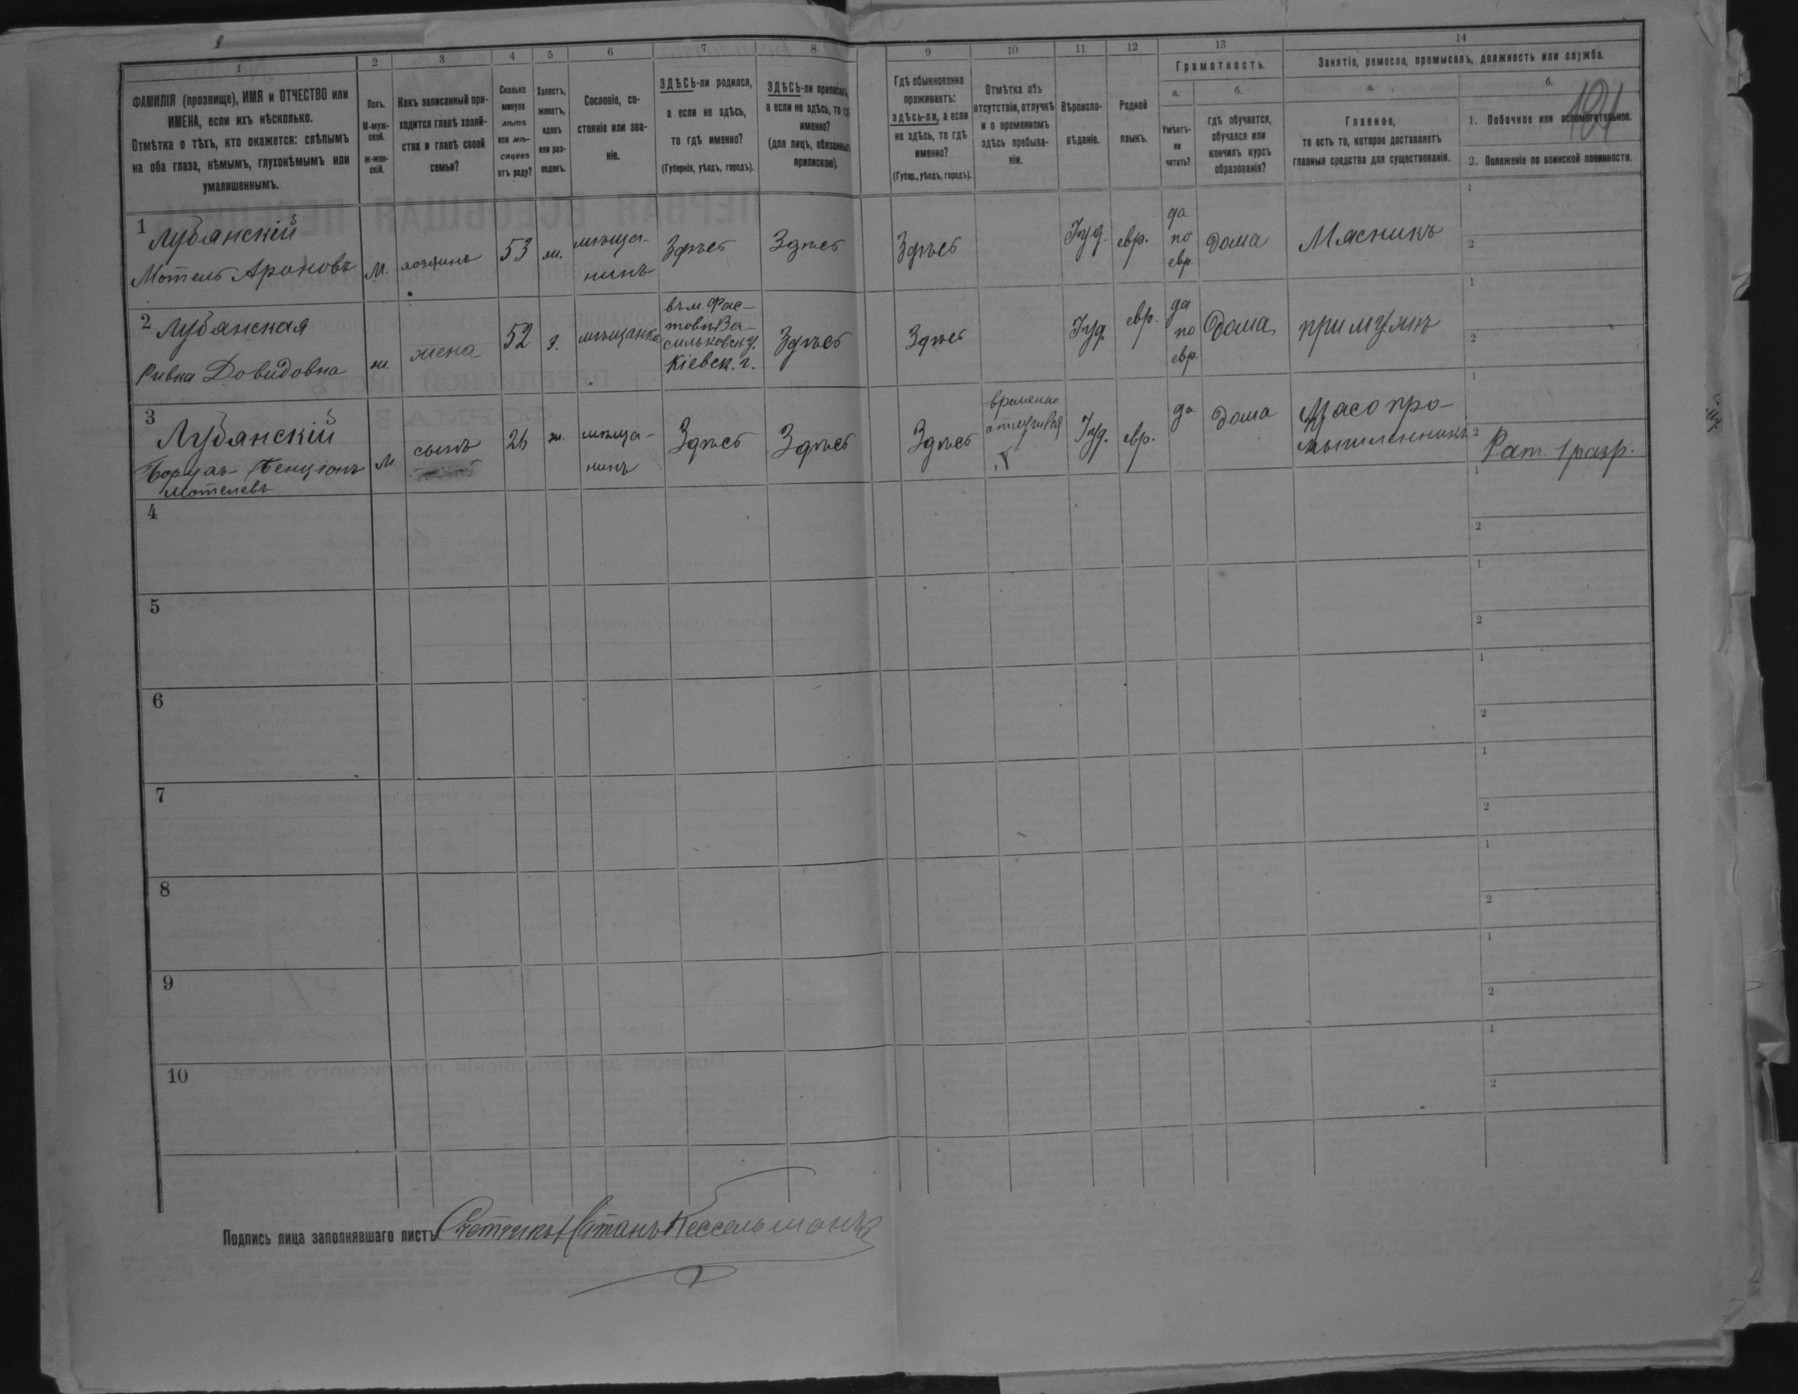 1 2 3 4 5 6 7 8 9 10 11 12 13 14
ФАМИЛІЯ (прозвище), ИМЯ и ОТЧЕСТВО или
ИМЕНА, если ихъ нѣсколько.
Отмѣтка о тѣхъ, кто окажется: слѣпымъ
на оба глаза, нѣмымъ, глухонѣмымъ или
умалишеннымъ.
Полъ.
М-муж-
ской.
ж-жен-
скій.
Какъ записанный при-
ходится главѣ хозяй-
ства и главѣ своей
семьи?
Сколько
минуло
лѣтъ
или мѣ-
сяцевъ
отъ роду?
Холостъ,
женатъ,
вдовъ
или раз-
веденъ.
Сословіе, со-
стояніе или зва-
ніе.
ЗДѢСЬ-ли родился,
а если не здѣсь,
то гдѣ именно?
(Губернія, уѣздъ, городъ).
ЗДѢСЬ-ли приписанъ,
а если не здѣсь, то гдѣ
именно?
(для лицъ, обязанныхъ
припискою).
Гдѣ обыкновенно
проживаетъ:
здѣсь-ли, а если
не здѣсь, то гдѣ
именно?
(Губер., уѣздъ, городъ).
Отмѣтка объ
отсутствіи, отлучкѣ
и о временномъ
здѣсь пребыва-
ніи.
Вѣроиспо-
вѣданіе.
Родной
языкъ.
Грамотность.
а.
Умѣетъ-
ли
читать?
б.
гдѣ обучается,
обучался или
кончилъ курсъ
образованія?
Занятіе, ремесло, промыселъ, должность или служба.
а.
Главное,
то есть то, которое доставляетъ
главныя средства для существованія.
б.
1. Побочное или вспомогательное.
2. Положеніе по воинской повинности.
121
1 Лубянскій
Мотель Ароновъ
м.
хозяинъ
53
ж.
мѣща-
нинъ
Здѣсь
Здѣсь
Здѣсь
Іуд.
евр.
да
по
евр.
дома
Мясникъ
1
2
2 Лубянская
Ривка Довидовна
ж.
жена
52
з.
мѣщанка
въ м. Фас-
товъ Ва-
сильковск. у.
Кіевск. г.
Здѣсь
Здѣсь
Іуд.
евр.
да
по
евр.
дома
при мужѣ
1
2
3
Лубянскій
Борухъ Бенціонъ
Мотелевъ
м
сынъ
26
ж.
мѣща-
нинъ
Здѣсь
Здѣсь
Здѣсь
временно
Іуд.
евр.
да
дома
Мясопро-
мышленникъ
1
2 Рат. 1 разр.
4
1
2
5
1
2
6
1
2
7
1
2
8
1
2
9
1
2
10
1
2
Подпись лица заполнявшаго листъ Счетчикъ Натанъ Кессельманъ